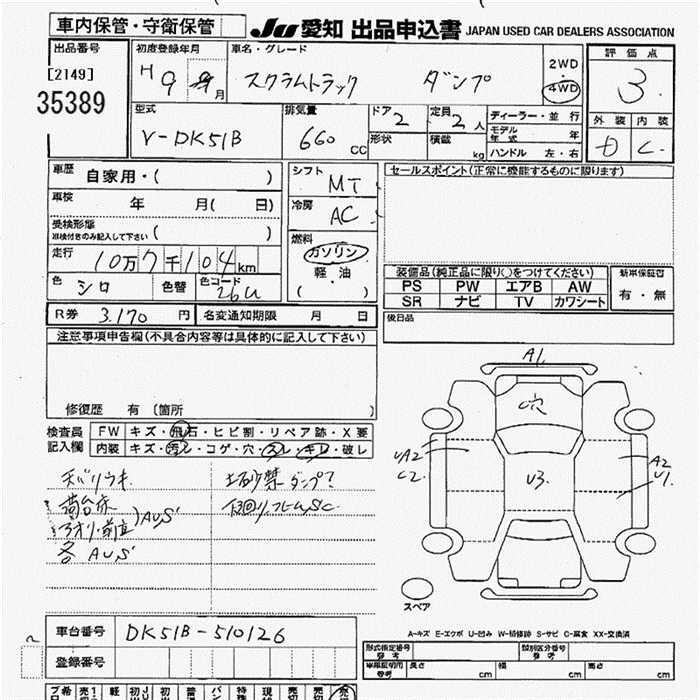 車内保管・守衛保管
JU 愛知 出品申込書 JAPAN USED CAR DEALERS ASSOCIATION
出品番号
[2149]
35389
初度登録年月
H 9 年 月
車名・グレード
スクラムトラック ダンプ
2WD
・
4WD
評価点
3
外装 内装
D C
型式
V-DK51B
排気量
660 CC
ドア 2
形状
定員 2 人
積載 kg
ディーラー・並行
モデル年式 年
ハンドル 左・右
車歴 自家用・( )
車検 年 月( 日)
受検形態 ( )
※検付きのみ記入して下さい
走行 10万7千104km
色 シロ 色替 色コード 26U
シフト MT
冷房 AC
燃料
ガソリン
軽・油
( )
セールスポイント(正常に機能するものに限ります)
装備品(純正品に限り○をつけてください)
PS PW エアB AW
SR ナビ TV カワシート
新車保証書
有・無
R券 3.170 円 名変通知期限 月 日
後日品
注意事項申告欄(不具合内容等は具体的に記入して下さい)
修復歴 有 (箇所 )
検査員 記入欄
FW キズ・飛石・ヒビ割・リペア跡・X要
内装 キズ・汚レ・コゲ・穴・スレ・キレ・破レ
天バリウキ
荷台床
アオリ・前立 )AUS
各AUS
土砂禁ダンプ?
下回り.フレームSC
A1
穴
UA2
C2
U3
A2
U1
スペア
A-キズ E-エクボ U-凹み W-補修跡 S-サビ C-腐食 XX-交換済
車台番号 DK51B-510126
登録番号
型式指定番号 参考
類別区分番号 参考
車庫証明用 参考 長さ cm 幅 cm 高さ cm